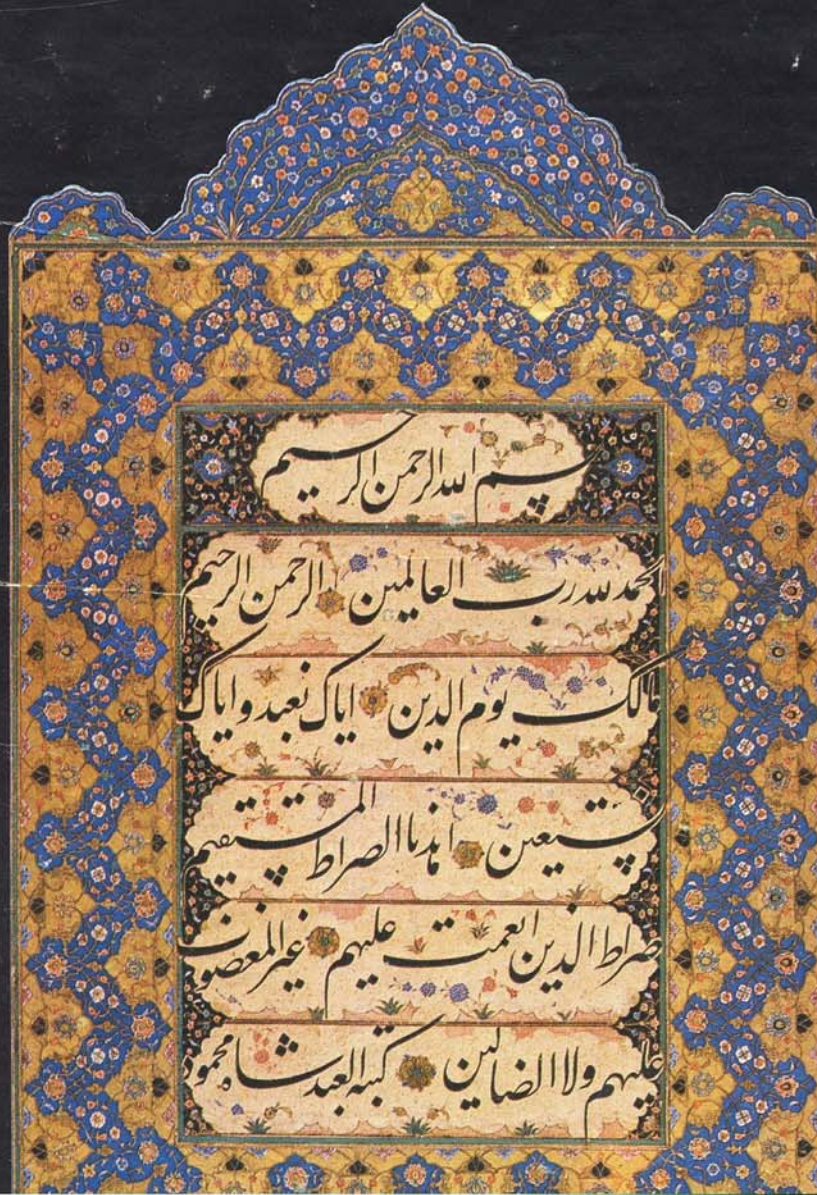 بسم الله الرحمن الرحيم
الحمد لله رب العالمين الرحمن الرحيم
مالك يوم الدين اياك نعبد واياك
نستعين اهدنا الصراط المستقيم
صراط الذين انعمت عليهم غير المغضوب
عليهم ولا الضالين كتبه العبد شاه محمود